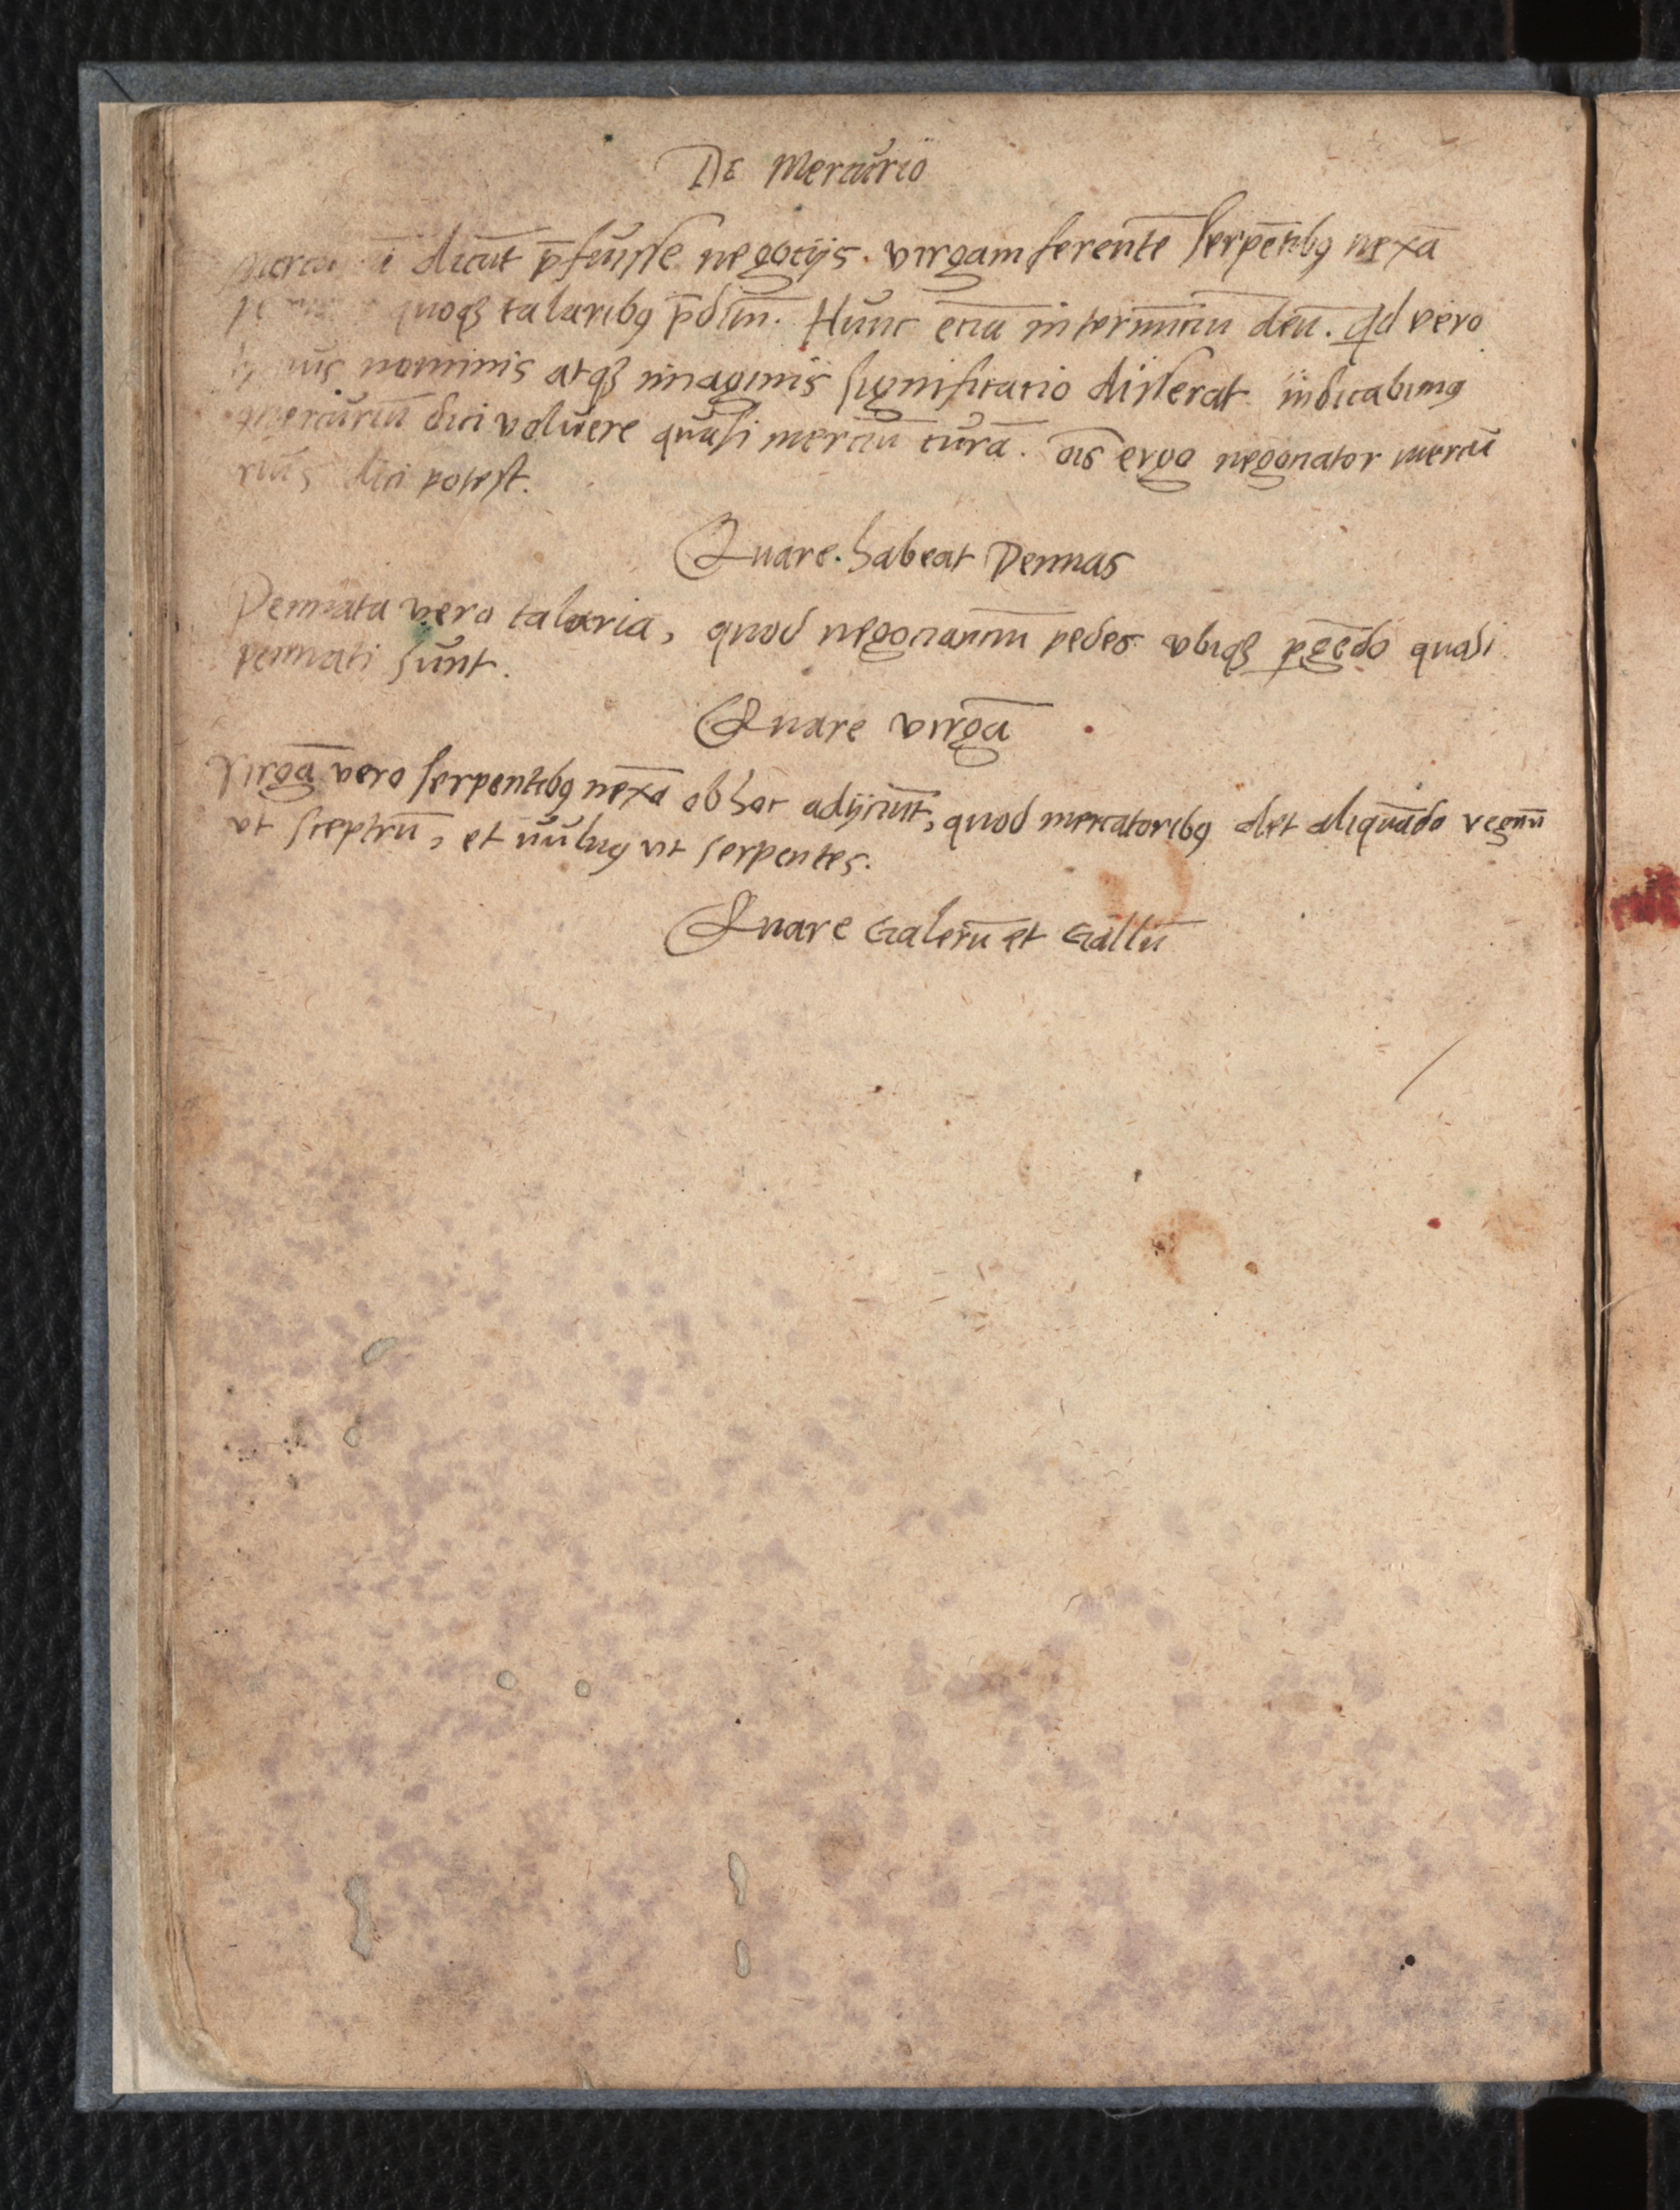 De Mercurio
dicūt p̄fuisse negocijs. virgam ferentē serpētibꝯ nexā
quoqꝫ talaribꝯ p̄ditū. Hunc eciā internūciū deū. Qd vero
nominis atqꝫ imaginis significatio disserat indicabimꝯ
mercuriū dici voluere quasi merciū curā. oīs ergo negociator mercu
rius dici potest.
Quare habeat Pennas
Pennata vero talaria, quod negociantiū pedes ubiqꝫ ꝑgēdo quasi
pennati sunt.
Quare virgā
Virgā vero serpentibꝯ nexā ob hoc adijciūt, quod mercatoribꝯ det aliquādo regnū
ut sceptrū, et vulnꝯ ut serpentes.
Quare Galerū et Gallū